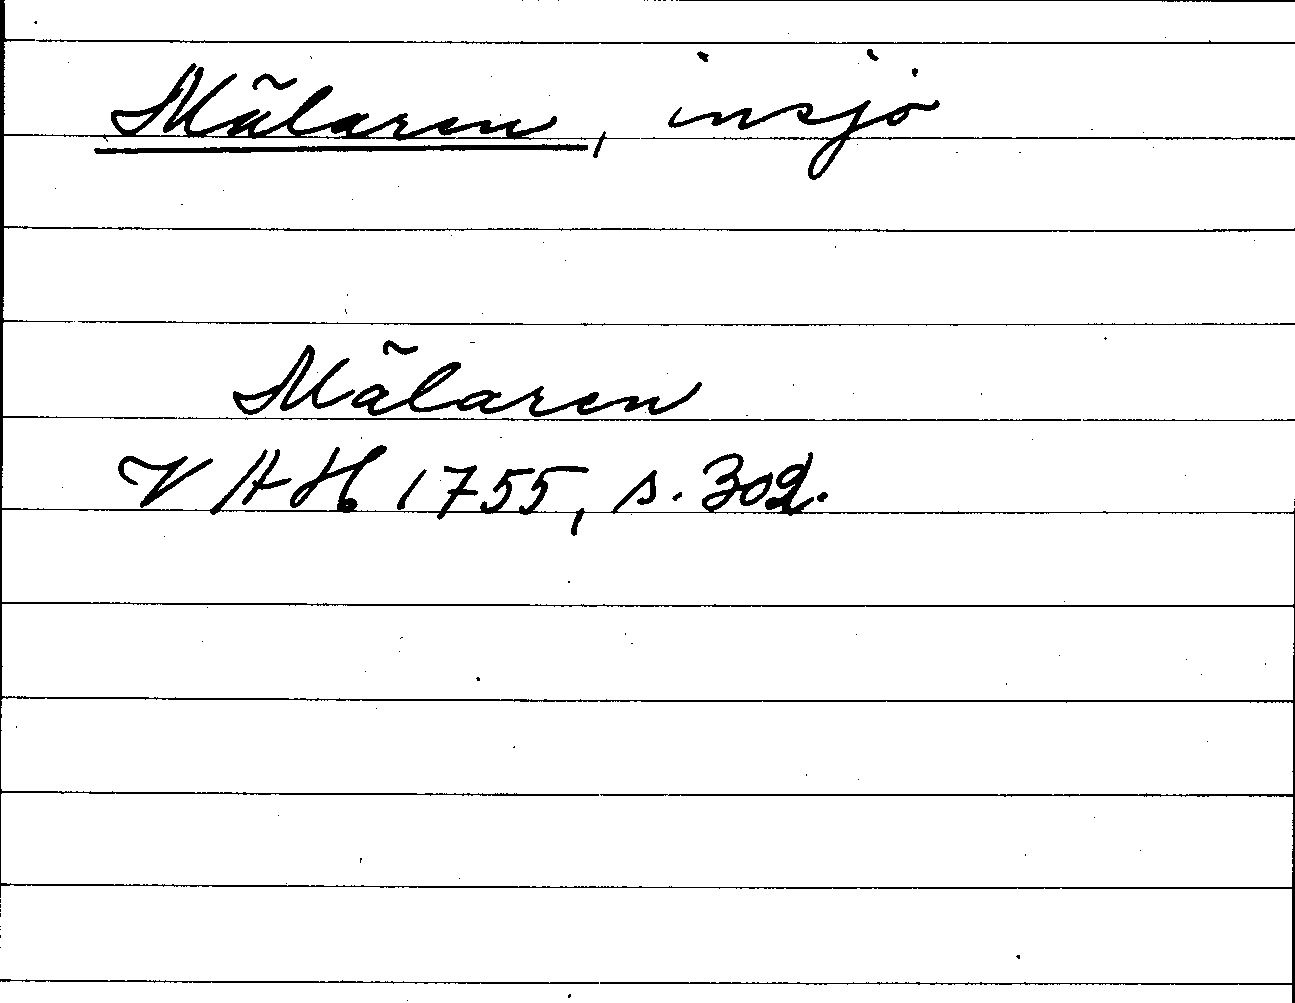 Mälaren, insjö
Mälaren
VAH 1755, s. 302.